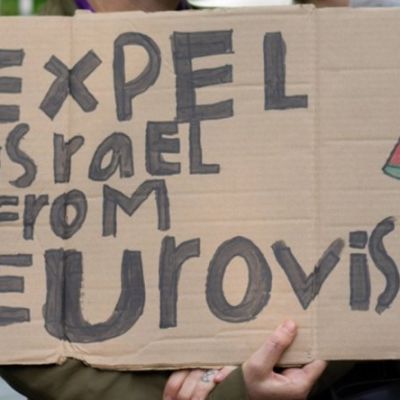 EXPEL
ISraEL
FROM
EUrovis